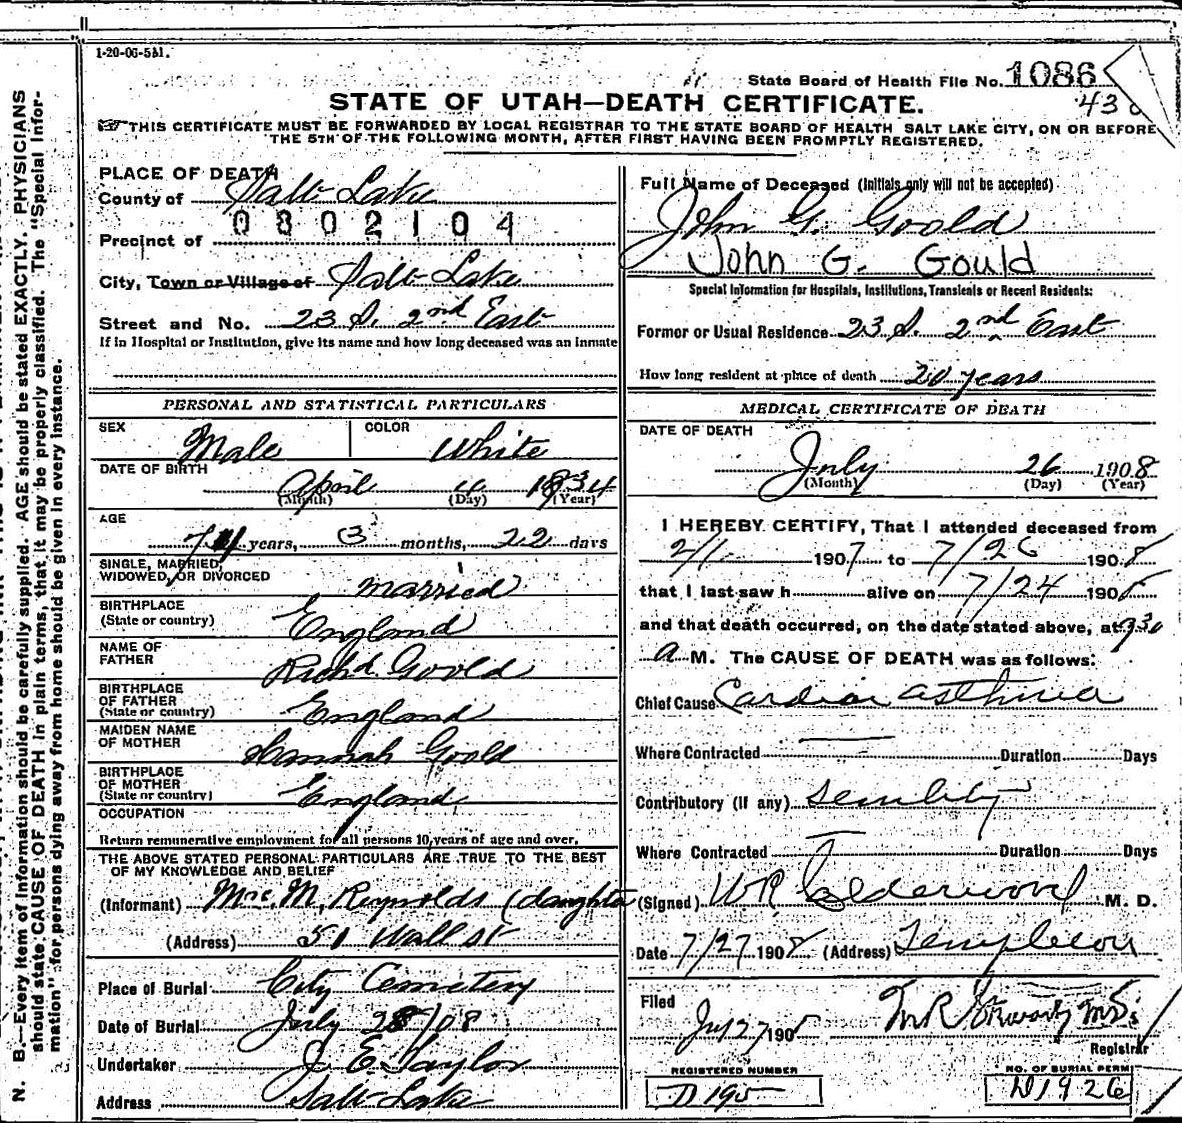 1-20-06-5M.
State Board of Health File No. 1086
STATE OF UTAH—DEATH CERTIFICATE.
THIS CERTIFICATE MUST BE FORWARDED BY LOCAL REGISTRAR TO THE STATE BOARD OF HEALTH SALT LAKE CITY, ON OR BEFORE
THE 5TH OF THE FOLLOWING MONTH, AFTER FIRST HAVING BEEN PROMPTLY REGISTERED.
PLACE OF DEATH
County of Salt Lake
0802104
Precinct of
City, Town or Village of Salt Lake
Street and No. 23 S. 2nd East
If in Hospital or Institution, give its name and how long deceased was an inmate
PERSONAL AND STATISTICAL PARTICULARS
SEX Male COLOR White
DATE OF BIRTH
April 4 1834
(Month) (Day) (Year)
AGE
years, 3 months, 22 days
SINGLE, MARRIED,
WIDOWED, OR DIVORCED married
BIRTHPLACE
(State or country) England
NAME OF
FATHER Richd. Goold
BIRTHPLACE
OF FATHER
(State or country) England
MAIDEN NAME
OF MOTHER Hannah Goold
BIRTHPLACE
OF MOTHER
(State or country) England
OCCUPATION
Return remunerative employment for all persons 10 years of age and over.
THE ABOVE STATED PERSONAL PARTICULARS ARE TRUE TO THE BEST
OF MY KNOWLEDGE AND BELIEF
(Informant) Mrs. M. Reynolds (daughter
(Address) 51 Wall st
Place of Burial City Cemetery
Date of Burial July 28/08
Undertaker J. E. Taylor
Address Salt Lake
Full Name of Deceased (Initials only will not be accepted)
John G. Goold
John G. Gould
Special Information for Hospitals, Institutions, Transients or Recent Residents:
Former or Usual Residence 23 S. 2nd East
How long resident at place of death 20 years
MEDICAL CERTIFICATE OF DEATH
DATE OF DEATH
July 26 1908
(Month) (Day) (Year)
I HEREBY CERTIFY, That I attended deceased from
2/1 1907 to 7/26 1908
that I last saw h alive on 7/24 1908
and that death occurred, on the date stated above, at 930
a M. The CAUSE OF DEATH was as follows:
Chief Cause Cardiac asthma
Where Contracted Duration Days
Contributory (if any) senility
Where Contracted Duration Days
(Signed) W.R. Calderwood M. D.
Date 7/27 1908 (Address) Templeton
Filed
July 27 1908
Registrar
REGISTERED NUMBER
D 195
NO. OF BURIAL PERMIT
D1926
N. B.—Every item of information should be carefully supplied. AGE should be stated EXACTLY. PHYSICIANS
should state CAUSE OF DEATH in plain terms, that it may be properly classified. The "Special Infor-
mation" for persons dying away from home should be given in every instance.